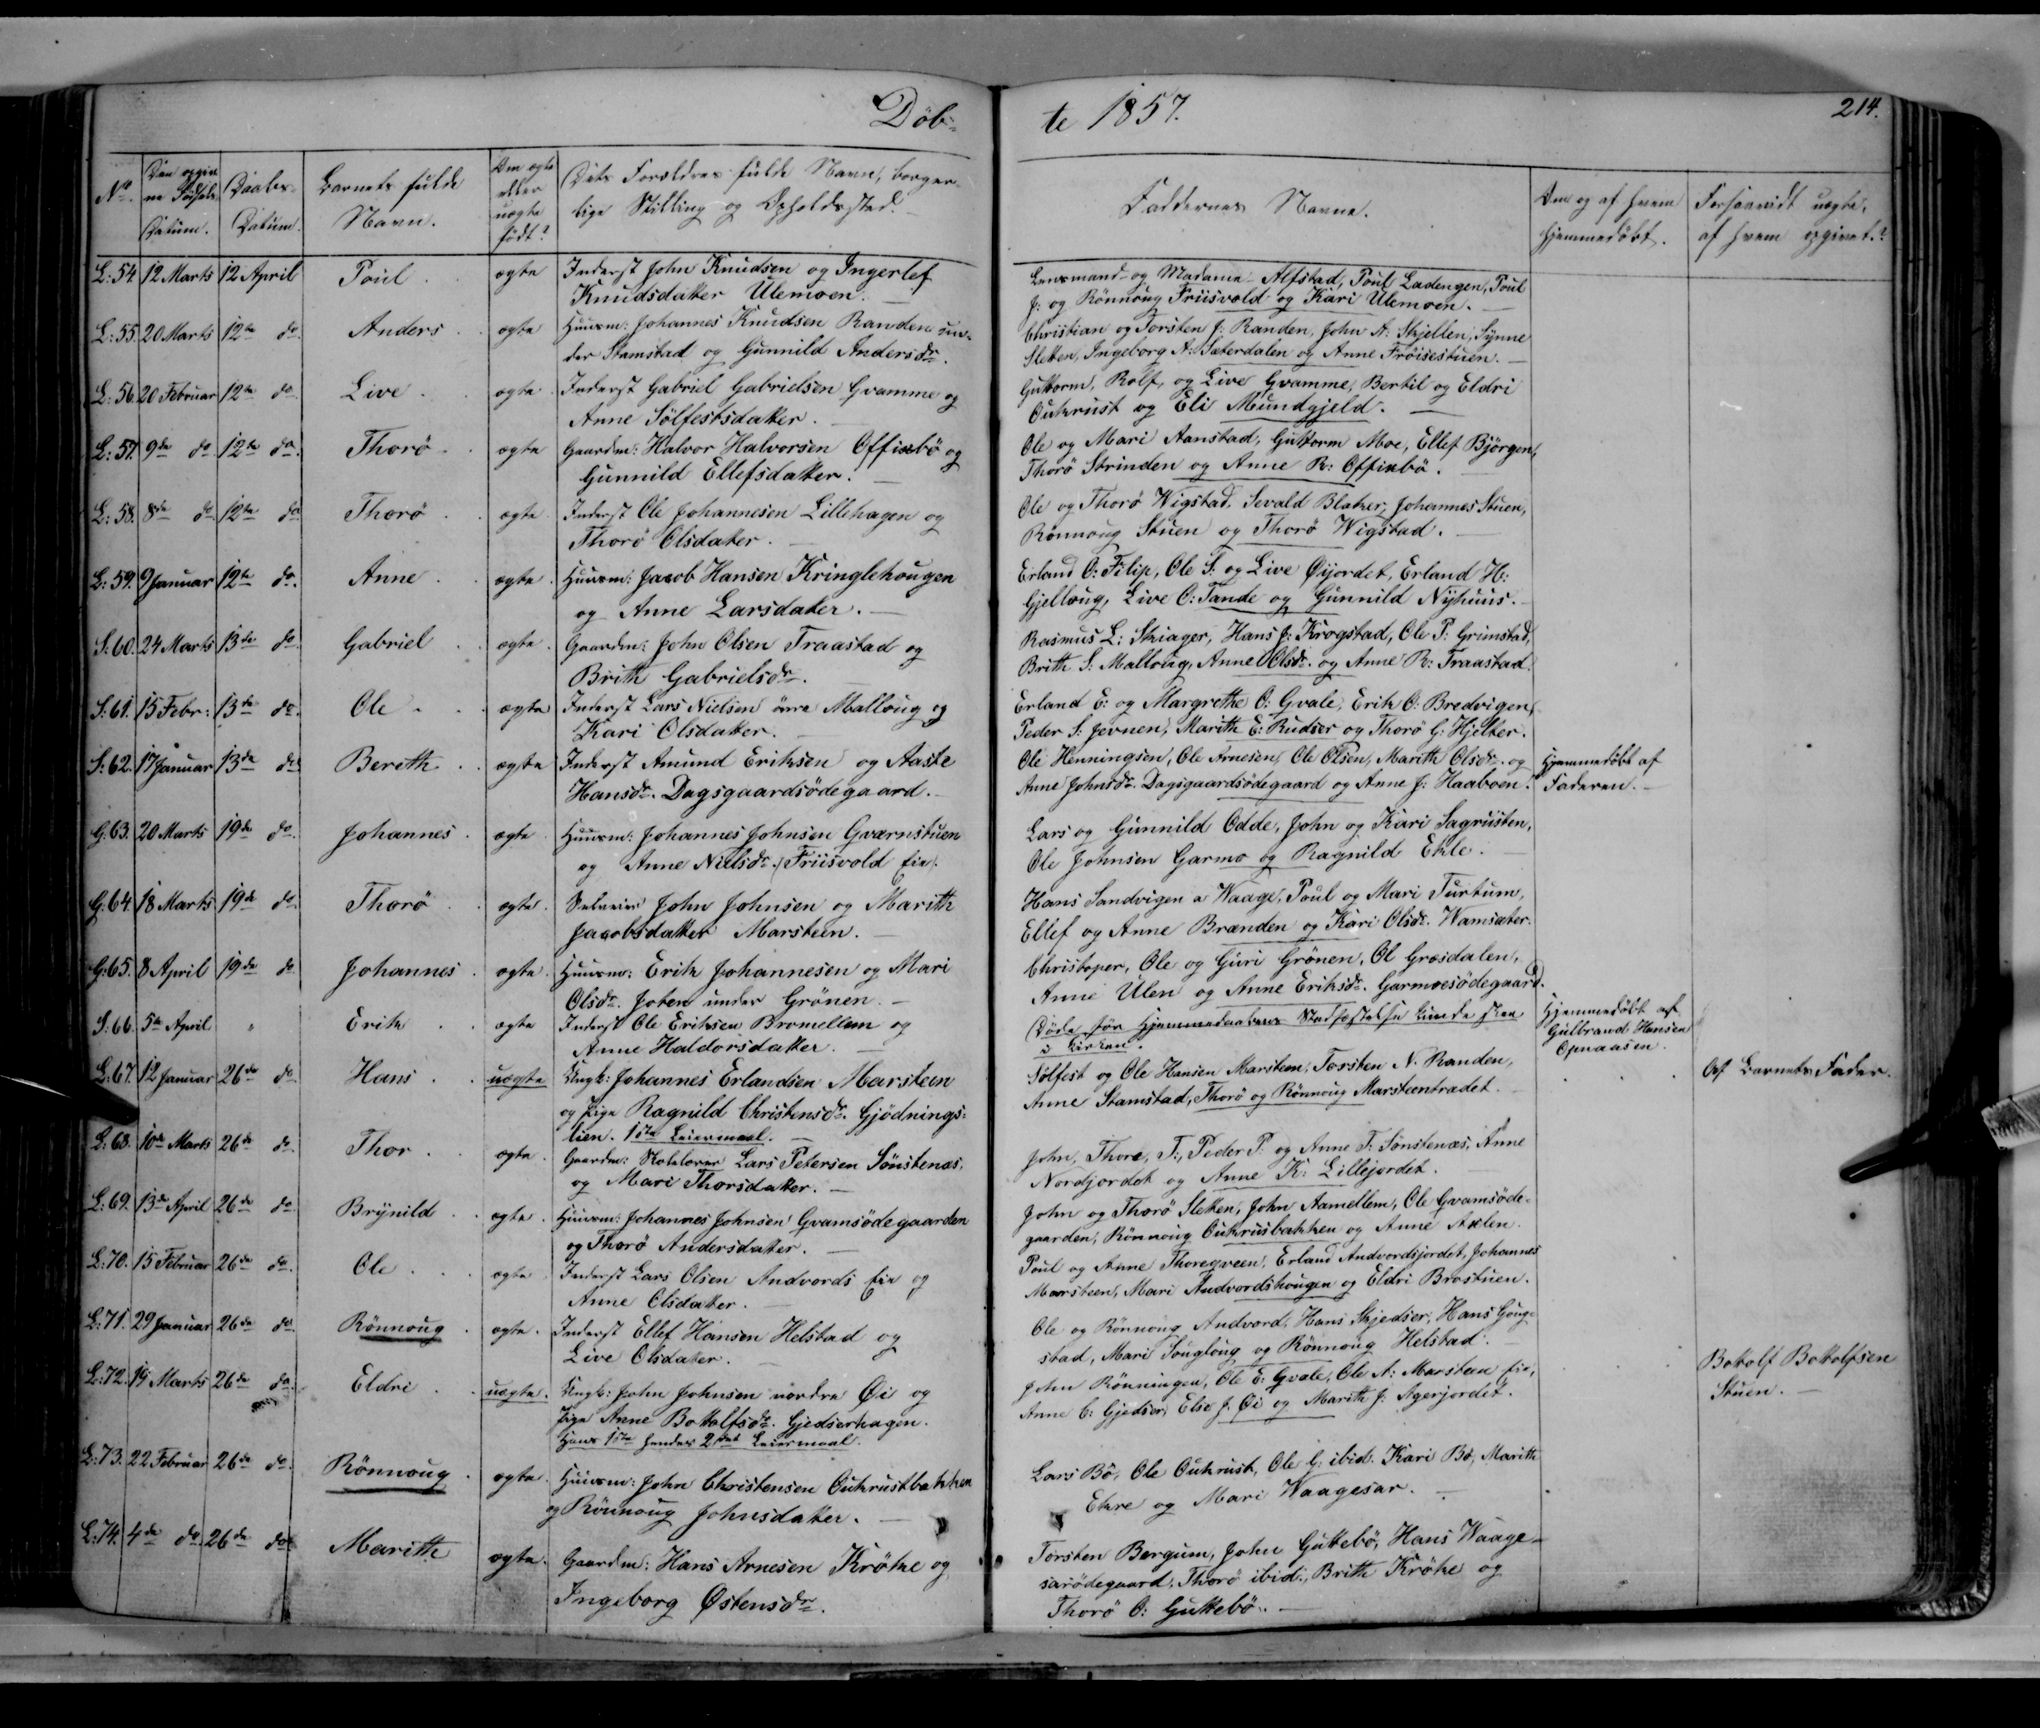 Døb-
te 1857.
214.
No. Den opgivne Fødsels Datum. Daabs-Datum. Barnets fulde Navn. Om ægte eller uægte født? Dets Forældres fulde Navn, borgerlige Stilling og Opholdssted.
Faddernes Navne. Om og af hvem hjemmedøbt. Forsaavidt uægte, af hvem opgivet?
L: 54. 12 Marts 12 April Poul ægte Inderst John Knudsen og Ingerlef
Knudsdatter Ulemoen.
Lensmand og Madame Alfstad, Poul Ladengen, Poul
J: og Rønnoug Friisvold og Kari Ulemoen.
L: 55. 20 Marts 12te do Anders ægte Huusm: Johannes Knudsen Randen un-
der Stamstad og Gunnild Andersdr.
Christian og Torsten J: Randen, John A: Skjellen, Synne
Sletten, Ingeborg A: Sæterdalen og Anne Frøisestuen.
L: 56. 20 Februar 12te do Live ægte Inderst Gabriel Gabrielsen Gvamme og
Anne Sølfestsdatter.
Guttorm, Rolf, og Live Gvamme, Bertil og Eldri
Oukrust og Eli Mundgjeld.
L: 57. 9de do 12te do. Thorø ægte Gaardm: Halvor Halvorsen Offisbø og
Gunnild Ellefsdatter.
Ole og Mari Aanstad, Guttorm Moe, Ellef Bjørgen,
Thorø Strinden og Anne R: Offisbø.
L: 58. 8de do 12te do Thorø ægte Inderst Ole Johannesen Lillehagen og
Thorø Olsdatter.
Ole og Thorø Wigstad, Sevald Blaker, Johannes Stuen,
Rønnoug Stuen og Thorø Wigstad.
L: 59. 9 Januar 12te do. Anne ægte Huusm: Jacob Hansen Kringlehougen
og Anne Larsdatter.
Erland O: Filip, Ole S: og Live Øijordet, Erland H:
Gjelloug, Live O: Tande og Gunnild Nyhuus.
S: 60. 24 Marts 13de do. Gabriel ægte Gaardm: John Olsen Traastad og
Brith Gabrielsdr.
Rasmus L: Skiager, Hans J: Krogstad, Ole P: Grimstad,
Brith S: Malloug, Anne Olsdr. og Anne R: Traastad.
S: 61. 15 Febr: 13de do. Ole ægte Inderst Lars Nielsen øvre Malloug og
Kari Olsdatter.
Erland E: og Margrethe O: Gvale, Erik O: Bredvigen,
Peder S: Jevnen, Marith E: Rudser og Thorø G: Hjelter.
S: 62. 17 Januar 13de do Bereth ægte Inderst Amund Eriksen og Aaste
Hansdr. Dagsgaardsødegaard.
Ole Henningsen, Ole Arnesen, Ole Olsen, Marith Olsdr. og
Anne Johnsdr. Dagsgaardsødegaard og Anne J: Haaboen.
Hjemmedøbt af
Faderen.
G: 63. 20 Marts 19de do. Johannes ægte Huusm: Johannes Johnsen Gværnstuen
og Anne Nielsdr. (Friisvold Eie).
Lars og Gunnild Odde, John og Kari Sagrusten,
Ole Johnsen Garmo og Ragnild Ekle.
G: 64. 18 Marts 19de do. Thorø ægte Selveier John Johnsen og Marith
Jacobsdatter Marsteen.
Hans Sandvigen a Waage, Poul og Mari Turtum,
Ellef og Anne Brænden og Kari Olsdr. Wamsæter.
G: 65. 8 April 19de do Johannes ægte Huusm: Erik Johannesen og Mari
Olsdr. Joten under Grønen.
Christoper, Ole og Guri Grønen, Ol Græsdalen,
Anne Ulen og Anne Eriksdr. Garmoesødegaard.
S: 66. 5te April " Erik ægte Inderst Ole Eriksen Bromellem og
Anne Haldorsdatter.
Døde før Hjemmedaabens Stadfæstelse kunde skee
i Kirken.
Hjemmedøbt af
Gulbrand Hansen
Opnaasen.
L: 67. 12 Januar 26de do Hans uægte Ungk: Johannes Erlandsen Marsteen
og Pige Ragnild Christensdr. Gjødnings-
lien. 1ste Leiermaal.
Sølfest og Ole Hansen Marsteen, Torsten N: Randen,
Anne Stamstad, Thorø og Rønnoug Marsteentrædet.
Af Barnets Fader.
L: 68. 10de Marts 26de do. Thor ægte Gaardm: Lars Petersen Sønstenæs,
og Mari Thorsdatter.
John, Thore, T:, Peder P: og Anne T: Sønstenæs, Anne
Nordjordet og Anne K: Lillejordet.
L: 69. 13de April 26de do Brynild ægte Huusm: Johannes Johnsen Gvamsødegaarden
og Thorø Andersdatter.
John og Thorø Sletten, John Aamellem, Ole Gvamsøde-
gaarden, Rønnoug Oukrusbakken og Anne Axlen.
L: 70. 15 Februar 26de do. Ole ægte Inderst Lars Olsen Andvords Eie og
Anne Olsdatter.
Poul og Anne Thoregveen, Erland Andvordsjordet, Johannes
Marsteen, Mari Andvordshougen og Eldri Brostuen.
L: 71. 29 Januar 26de do Rønnoug ægte Inderst Ellef Hansen Helstad og
Live Olsdatter.
Ole og Rønnoug Andvord, Hans Skjedser, Hans Goug-
stad, Mari Sougloug og Rønnoug Helstad.
L: 72. 14 Marts 26de do. Eldri uægte Ungk: John Johnsen nordre Øi og
Pige Anne Bottolfsdr. Gjedserhagen.
Hans 1ste hendes 2det Leiermaal.
John Rønningen, Ole E: Gvale, Ole A: Marsteen Eie,
Anne C: Gjedser, Else J: Øi og Marith J: Agerjordet.
Bottolf Bottolfsen
Stuen.
L: 73. 22 Februar 26de do. Rønnoug ægte Huusm: John Christensen Oukrustbakken
og Rønnoug Johnsdatter.
Lars Bø, Ole Oukrust, Ole G: ibid. Kari Bø, Marith
Ekre og Mari Waagesar.
L: 74. 4de do. 26de do Marith ægte Gaardm: Hans Arnesen Krøke og
Ingeborg Østensdr.
Torsten Bergum, John Guttebø, Hans Waage-
sarødegaard, Thorø ibid:, Brith Krøke og
Thorø O: Guttebø.